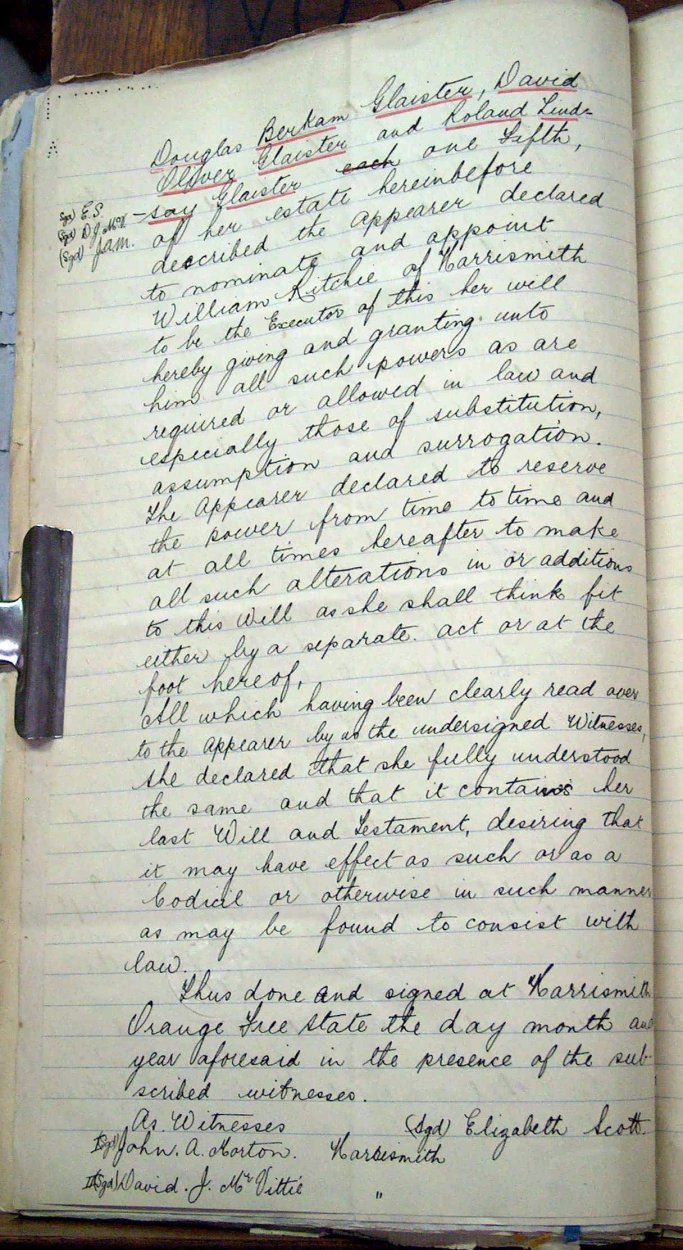 Douglas Berkam Glaister, David
Oliver Glaister and Roland Lind-
(Sgd) E.S.
-say Glaister each one fifth,
(Sgd) D J McV
of her estate hereinbefore
(Sgd) J.A.M.
described the appearer declared
to nominate and appoint
William Ritchie of Harrismith
to be the Executor of this her will
hereby giving and granting unto
him all such powers as are
required or allowed in law and
especially those of substitution,
assumption and surrogation.
The Appearer declared to reserve
the power from time to time and
at all times hereafter to make
all such alterations in or additions
to this Will as she shall think fit
either by a separate. act or at the
foot hereof,
All which having been clearly read over
to the Appearer by us the undersigned Witnesses,
she declared that she fully understood
the same and that it contains her
last Will and Testament, desiring that
it may have effect as such or as a
Codicil or otherwise in such manner
as may be found to consist with
law.
Thus done and signed at Harrismith
Orange Free State the day month and
year aforesaid in the presence of the sub-
scribed witnesses.
As Witnesses (Sgd) Elizabeth Scott.
I (Sgd) John. A. Morton. Harrismith
II (Sgd) David. J. McVittie "